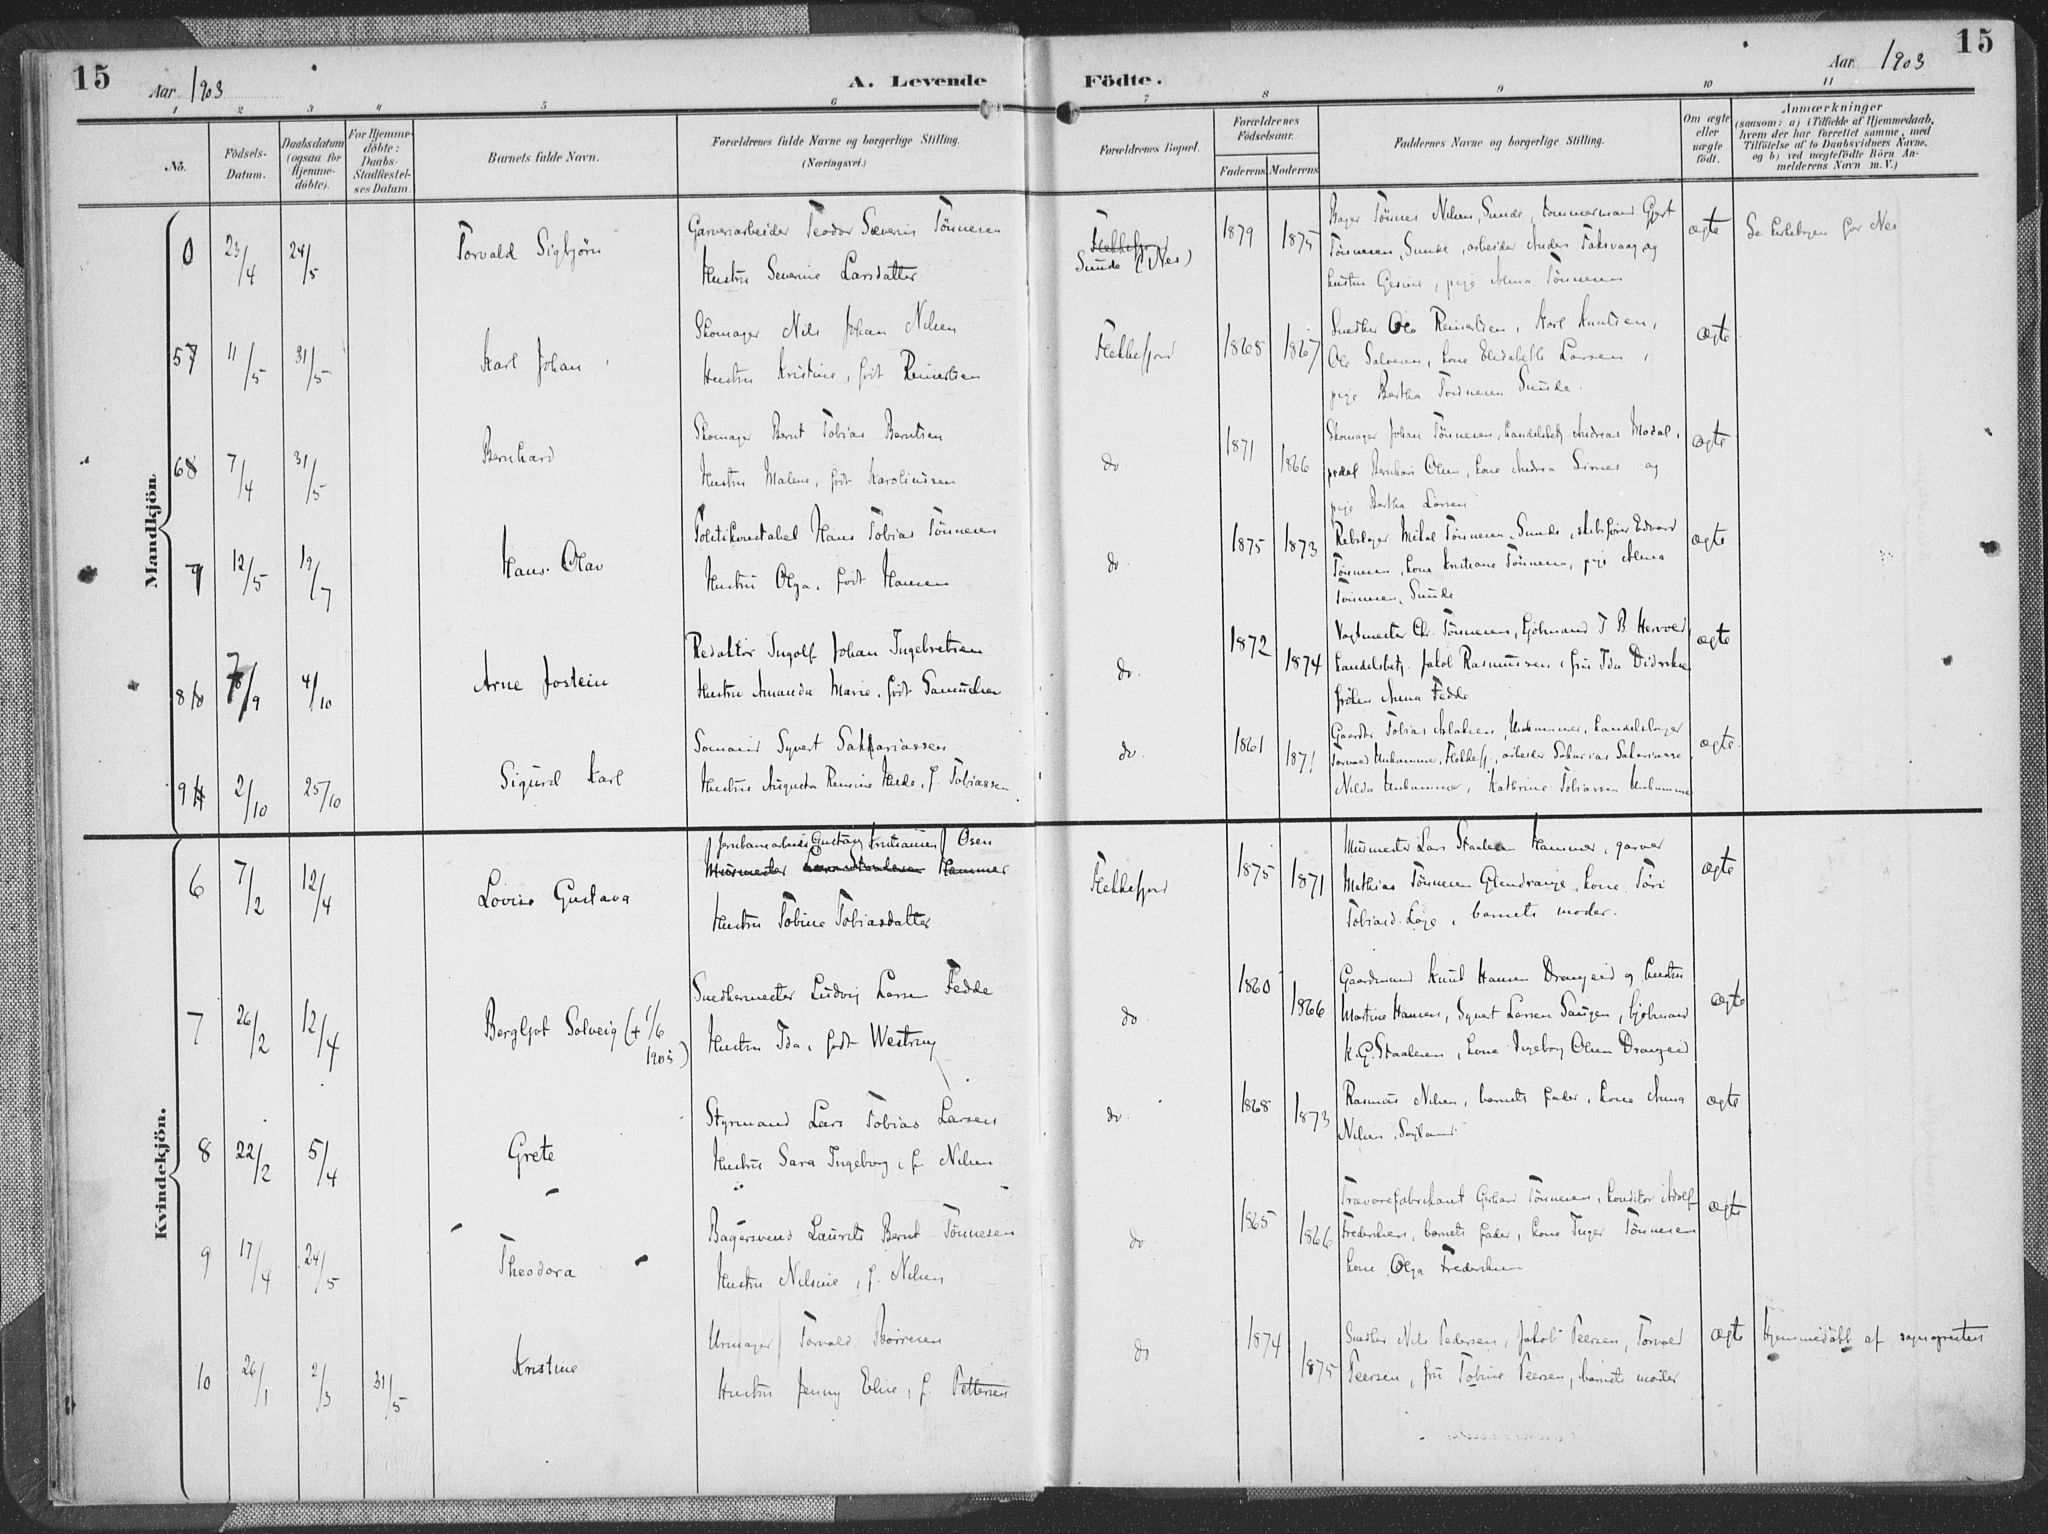 15
Aar 1903
A. Levende
Födte.
Aar 1903
15
1 2 3 4 5 6 7 8 9 10 11
No.
Födsels-Datum.
Daabsdatum (ogsaa for Hjemmedöbte).
For Hjemmedöbte: Daabs-Stadfæstelses Datum.
Barnets fulde Navn.
Forældrenes fulde Navne og borgerlige Stilling. (Næringsvei.)
Forældrenes Bopæl.
Forældrenes Födselsaar.
Faderens Moderens
Faddernes Navne og borgerlige Stilling.
Om ægte eller uægte födt.
Anmærkninger
(saasom: a) i Tilfælde af Hjemmedaab, hvem der har forrettet samme, med Tilföielse af to Daabsvidners Navne, og b) ved uægtefödte Börn Anmelderens Navn m. V.)
Mandkjön.
0 23/4 24/5 Torvald Sigbjörn
Garveriarbeider Teodor Severin Tönnesen
Hustru Severine Larsdatter
Flekkefjord
Sunde (Nes)
1879 1875
Bager Tönnes Nilsen, Sunde, tømmermand Gert
Tönnesen Sunde, arbeider Anders Faksvaag og
hustru Gesine, pige Alma Tönnesen
ægte
Se kirkebogen for Nes
57 11/5 31/5 Karl Johan
Skomager Nils Johan Nilsen
Hustru Kristine, født Reinertsen
Flekkefjord
1868 1867
Snedker Ole Reinertsen, Karl Knutsen,
Ole Salvesen, kone Elisabeth Larsen,
pige Bertha Tönnesen Sunde.
ægte
68 7/4 31/5 Bernhard
Skomager Bernt Tobias Berntsen
Hustru Malene, født Karoliussen
do
1871 1866
Skomager Johan Tönnesen, handelsbetj. Andreas Modal,
Bernhard Olsen, kone Andrea Sirnes og
pige Bertha Larsen
ægte
7 12/5 19/7 Hans Olav
Politikonstabel Hans Tobias Tönnesen
Hustru Olga, født Hansen
do.
1875 1873
Rebslager Mikal Tönnesen, Sunde, skibsfører Edvard
Tönnesen, kone Kristiane Tönnesen, pige Alma
Tönnesen, Sunde
ægte
8 7/9 4/10 Arne Jostein
Redaktør Ingolf Johan Ingebretsen
Hustru Amanda Marie, født Samuelsen
do.
1872 1874
Vagtmester Chr. Tönnesen, Kjøbmand T B Hervold,
handelsbetj. Jakob Rasmussen, fru Ida Didriksen
frøken Anna Fedde
ægte
9 2/10 25/10 Sigurd Karl
Sømand Syvert Sakkariassen
Hustru Augusta Rensine Hilde, f. Tobiassen
do.
1861 1871
Gaardbr Tobias Aslaksen, Unhammer, handelsborger
Torvald Unhammer, Flekkefj., arbeider Sakarias Sakariasse,
Nilda Unhammer, Kathrine Tobiassen Unhammer
ægte.
Kvindekjön.
6 7/2 12/4 Lovise Gustava
Jernbanearbeider Gustav Kristiansen Osen
Murmester Hammer
Hustru Tobine Tobiasdatter
Flekkefjord
1875 1871
Murmester Lars Staalesen Hammer, garver
Mathias Tönnesen Glendrange, kone Tori
Tobiasd. Løge, barnets moder.
ægte
7 26/2 12/4 Bergljot Solveig (+ 1/6 1903)
Snedkermester Ludvig Larsen Fedde
Hustru Ida, født Westrug
do
1860 1866
Gaardmand Knut Hansen Drangeid og hustru
Martine Hansen, Syvert Larsen Saugen, kjøbmand
K.G. Staalesen, kone Ingeborg Olsen Drangeid
ægte
8 22/2 5/4 Grete
Styrmand Lars Tobias Larsen
Hustru Sara Ingeborg, f. Nilsen
do.
1868 1873
Rasmus Nilsen, barnets fader, kone Anna
Nilsen
ægte
9 17/4 24/5 Theodora
Bagersvend Laurits Bernt Tönnesen
Hustru Nilsine, f. Nilsen
do
1865 1866
Trævarefabrikant Gerhard Tönnesen, konditor Adolf
Frederiksen, barnets fader, kone Inger Tönnesen
kone Olga Frederiksen
ægte
10 26/1 2/3 31/5 Kristine
Urmager Torvald
Hustru Jenny Elise, f. Pettersen
do
1874 1875
Snedker Nils Pedersen, Jakob Peersen, Torvald
Peersen, fru Tobine Peersen, barnets moder
ægte
Hjemmedøbt af sognepresten